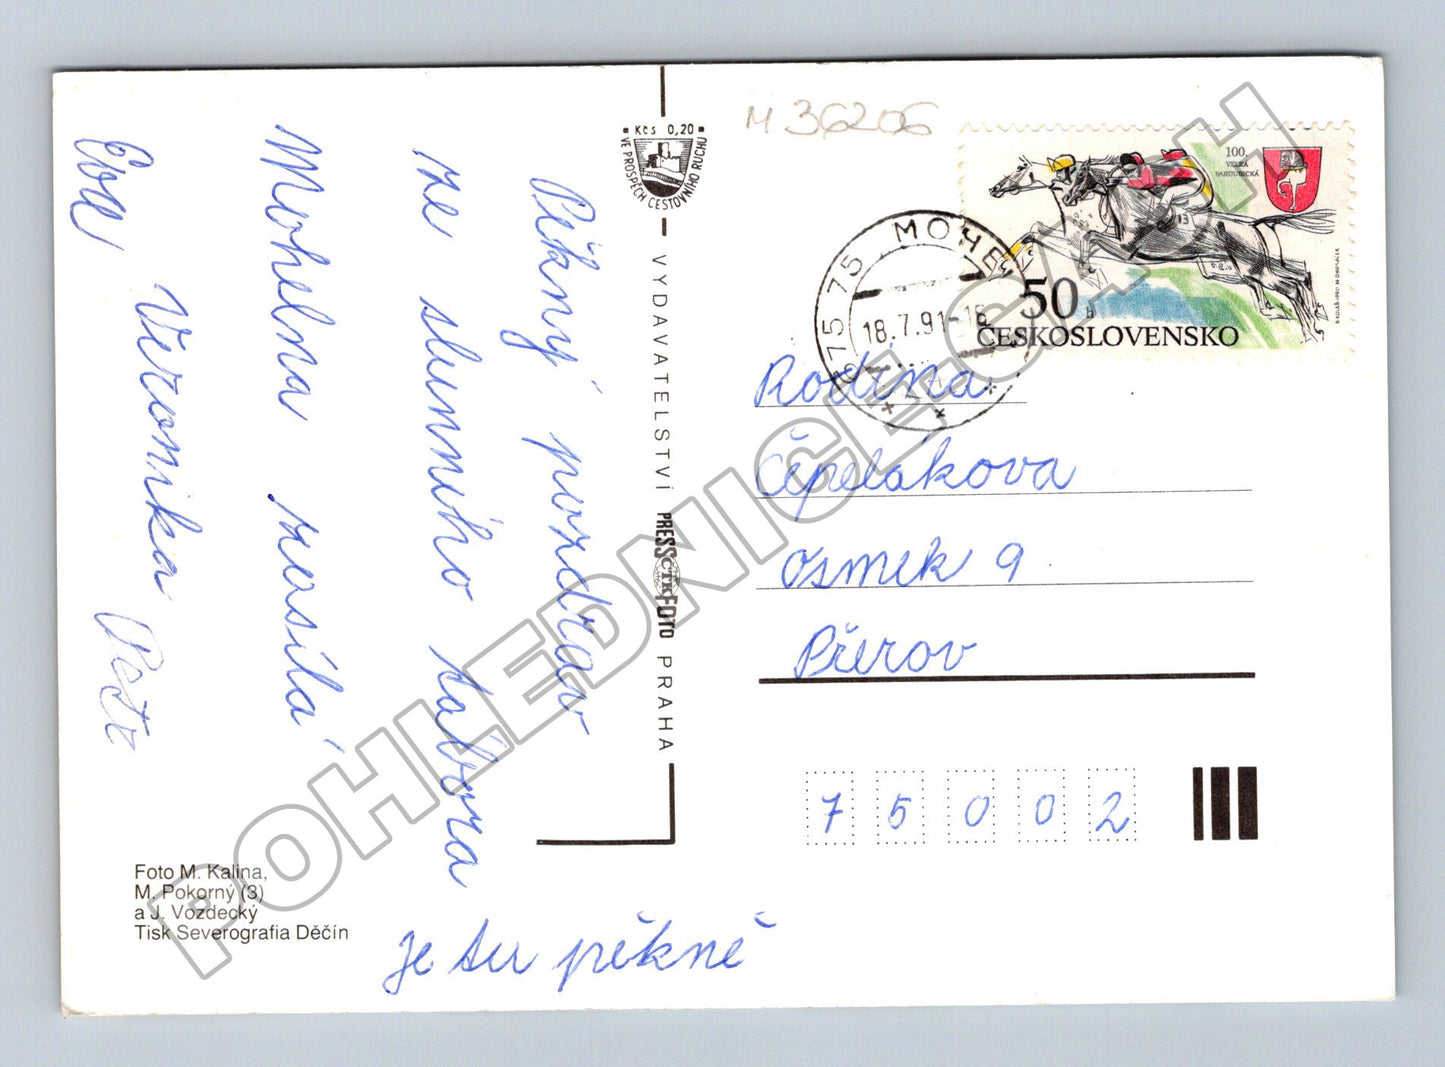 M 36206
Kčs 0,20
VE PROSPĚCH CESTOVNÍHO RUCHU
100.
VELKÁ
PARDUBICKÁ
50 h
ČESKOSLOVENSKO
675 75 MOHE
18.7.91-16
Pěkný pozdrav
ze slunného tábora
Mohelna zasílá
Eva Veronika Petr
je tu pěkně
VYDAVATELSTVÍ PRESSFOTO PRAHA
ČTK
Rodina
Čepelákova
Osmek 9
Přerov
75002
Foto M. Kalina,
M. Pokorný (3)
a J. Vozdecký
Tisk Severografia Děčín
POHLEDNICE.CASH